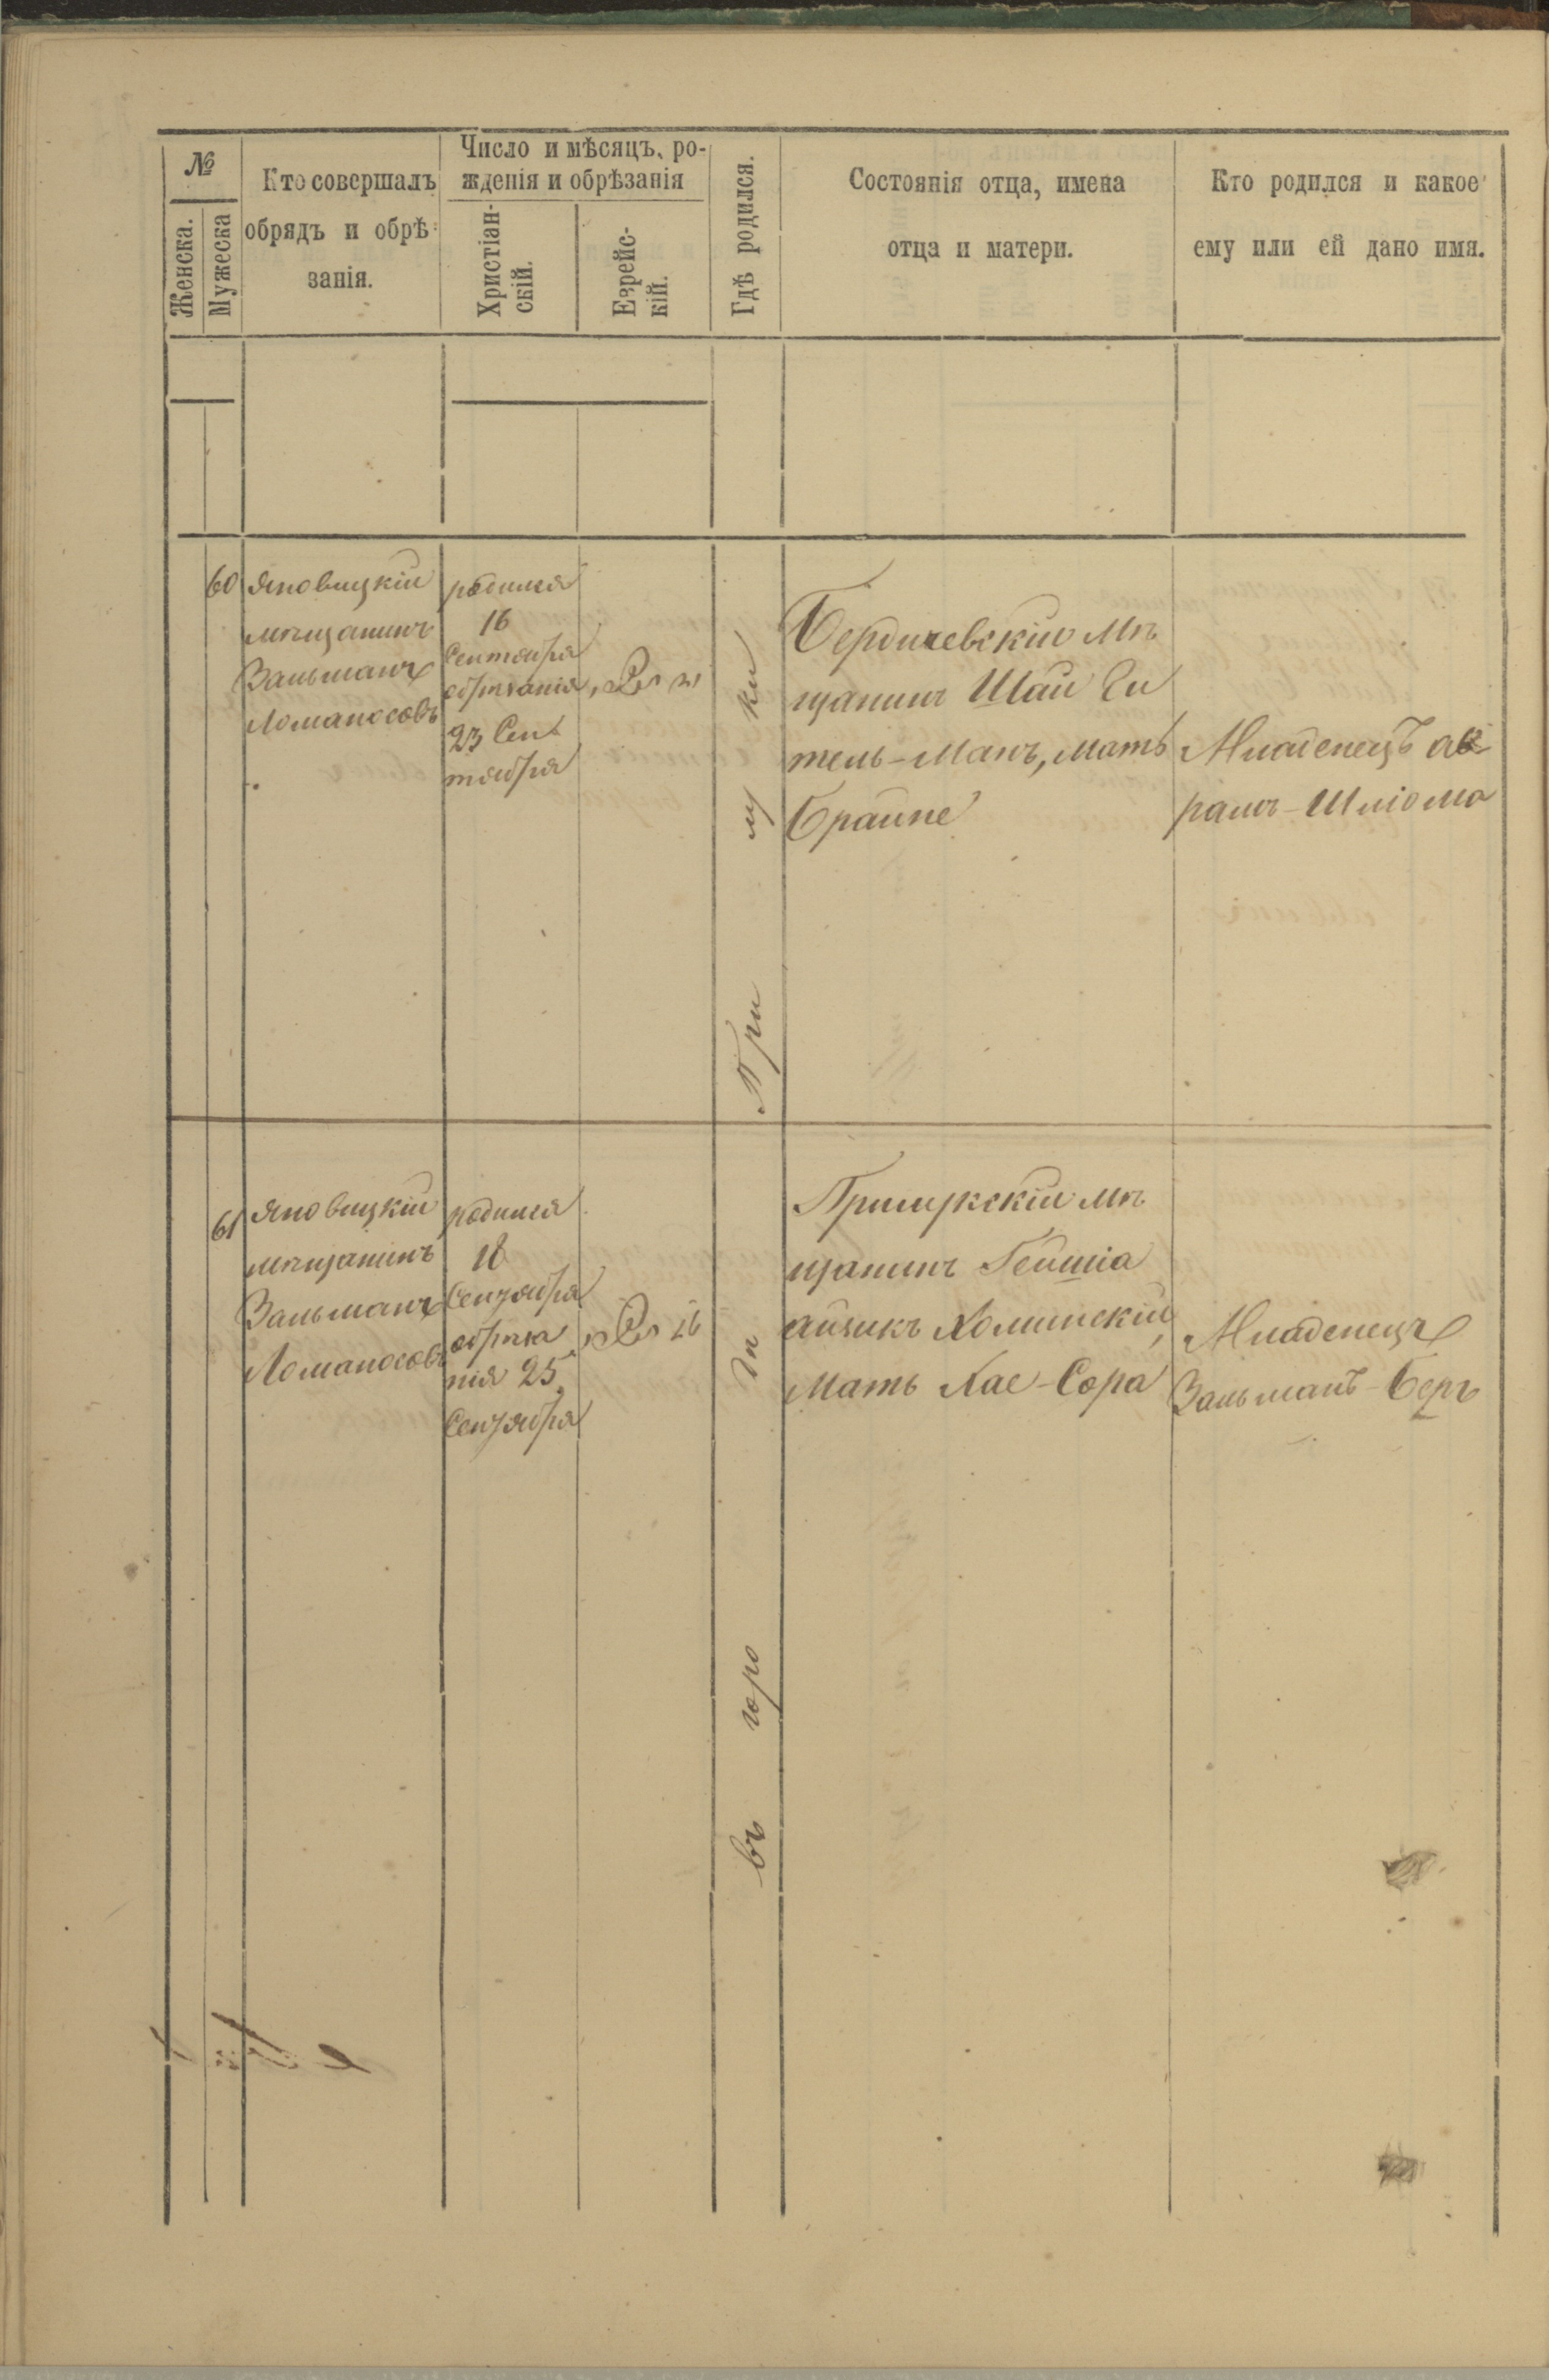 №
Женска.
Мужеска
Кто совершалъ
обрядъ и обрѣ-
занія.
Число и мѣсяцъ, ро-
жденія и обрѣзанія
Христіан-
скій.
Езрейс-
кій.
Гдѣ родился.
Состоянія отца, имена
отца и матери.
Кто родился и какое
ему или ей дано имя.
60
Яновицкій
мѣщанинъ
Зальманъ
Ломаносовъ
родился
16
Сентября
обрѣзанія
23 Сен
тября
Бердичевскій мѣ
щанинъ Шай Ги
тель-Манъ, мать
Брайне
Младенецъ Ав
рамъ-Шліома
61
Яновицкій
мѣщанинъ
Зальманъ
Ломаносовъ
родился
18
Сентября
обрѣза
нія 25
Сентября
Прилукскій мѣ
щанинъ Гейшіа
Айзикъ Холминскій,
мать Хае-Сора
Младенецъ
Зальманъ-Беръ
въ горо дѣ При лу ки